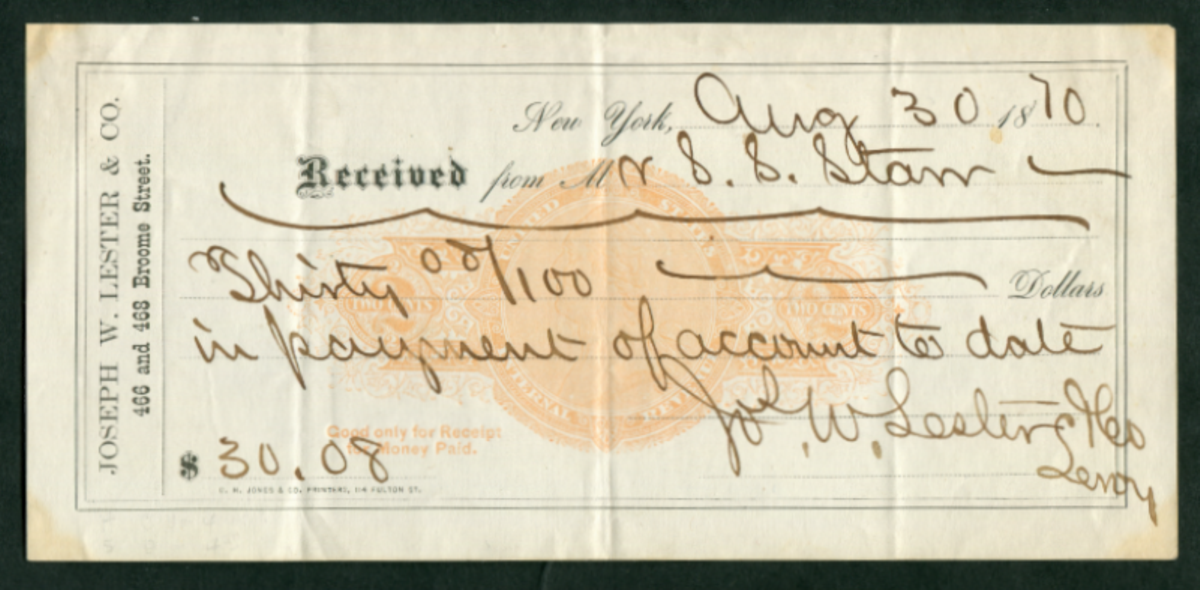 JOSEPH W. LESTER & CO.
466 and 468 Broome Street.
New York, Aug 30 1870
Received from Mr S. S. Starr
Thirty 08/100 Dollars
in payment of account to date
Jos. W. Lester & Co
$30.08
UNITED STATES
INTERNAL REVENUE
TWO CENTS
2
TWO CENTS
2
Good only for Receipt
for Money Paid.
C. H. JONES & CO. PRINTERS, 114 FULTON ST.